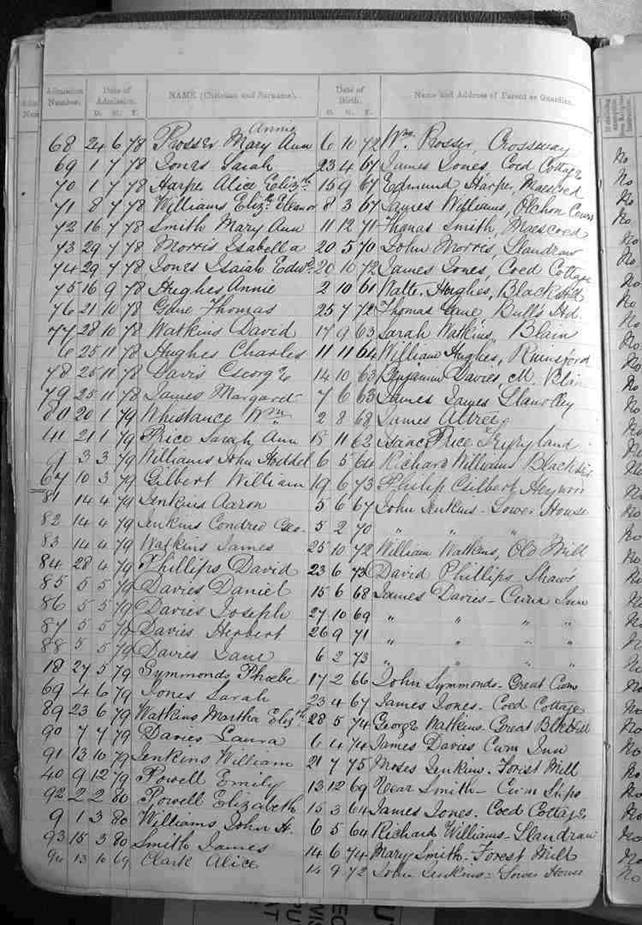 Admission Number. Date of Admission. NAME (Christian and Surname). Date of Birth. Name and Address of Parent or Guardian.
D. M. Y. D. M. Y.
Annie
68 24 6 78 Prosser Mary Ann 6 10 72 Wm. Prosser, Crossway
69 1 7 78 Jones Sarah 23 4 67 James Jones Coed Cottage
70 1 7 78 Harper Alice Elizth 16 9 67 Edmund Harper, Maescoed
71 8 7 78 Williams Elizth Eleanor 8 3 67 James Williams, Olchon Court
72 16 7 78 Smith Mary Ann 11 12 71 Thomas Smith, Maescoed
73 29 7 78 Morris Isabella 20 5 70 John Morris, Llandraw
74 29 7 78 Jones Isaiah Edwd. 20 10 72 James Jones, Coed Cottage
75 16 9 78 Hughes Annie 2 10 61 Hughes,
76 21 10 78 Gane Thomas 25 7 72 Thomas Gane Bull's Hd.
77 28 10 78 Watkins David 17 9 63 Sarah Watkins, Blain
6 25 11 78 Hughes Charles 11 11 64 William Hughes,
78 25 11 78 Davis George 14 10 63 Benjamin Davies, M.
79 25 11 78 James Margaret 7 6 63 James James
80 20 1 79 Whistance Wm. 2 8 68 James
41 21 1 79 Price Sarah Ann 18 11 62 Isaac Price
9 3 3 79 Williams John Hoddel 6 5 64 Richard Williams
67 10 3 79 Gilbert William 19 6 73 Philip Gilbert
81 14 4 79 Jenkins Aaron 5 6 67 John Jenkins - Lower House
82 14 4 79 Jenkins Geo. 5 2 70 " " " "
83 14 4 79 Watkins James 25 10 72 William Watkins, Old Mill
84 28 4 79 Phillips David 23 6 73 David Phillips Shaws
85 5 5 79 Davies Daniel 15 6 68 James Davies - Cwm Inn
86 5 5 79 Davies Joseph 27 10 69 " " " "
87 5 5 79 Davies Herbert 26 9 71 " " " "
88 5 5 79 Davies Jane 6 2 73 " " " "
18 27 5 79 Symmonds Phoebe 17 2 66 John Symmonds - Great Cwm
69 4 6 79 Jones Sarah 23 4 67 James Jones - Coed Cottage
89 23 6 79 Watkins Martha Elizth 28 5 74 George Watkins - Great
90 7 7 79 Davies Laura 6 4 74 James Davies Cwm Inn
91 13 10 79 Jenkins William 21 7 75 Moses Jenkins - Forest Mill
40 9 12 79 Powell Emily 13 12 69 Smith -
92 2 2 80 Powell Elizabeth 15 3 64 James Jones - Coed Cottage
9 1 3 80 Williams John H. 6 5 64 Richard Williams - Llandraw
93 15 3 80 Smith James 14 6 74 Mary Smith - Forest Mill
94 13 10 69 Clark Alice 14 9 72 John Jenkins - Lower House